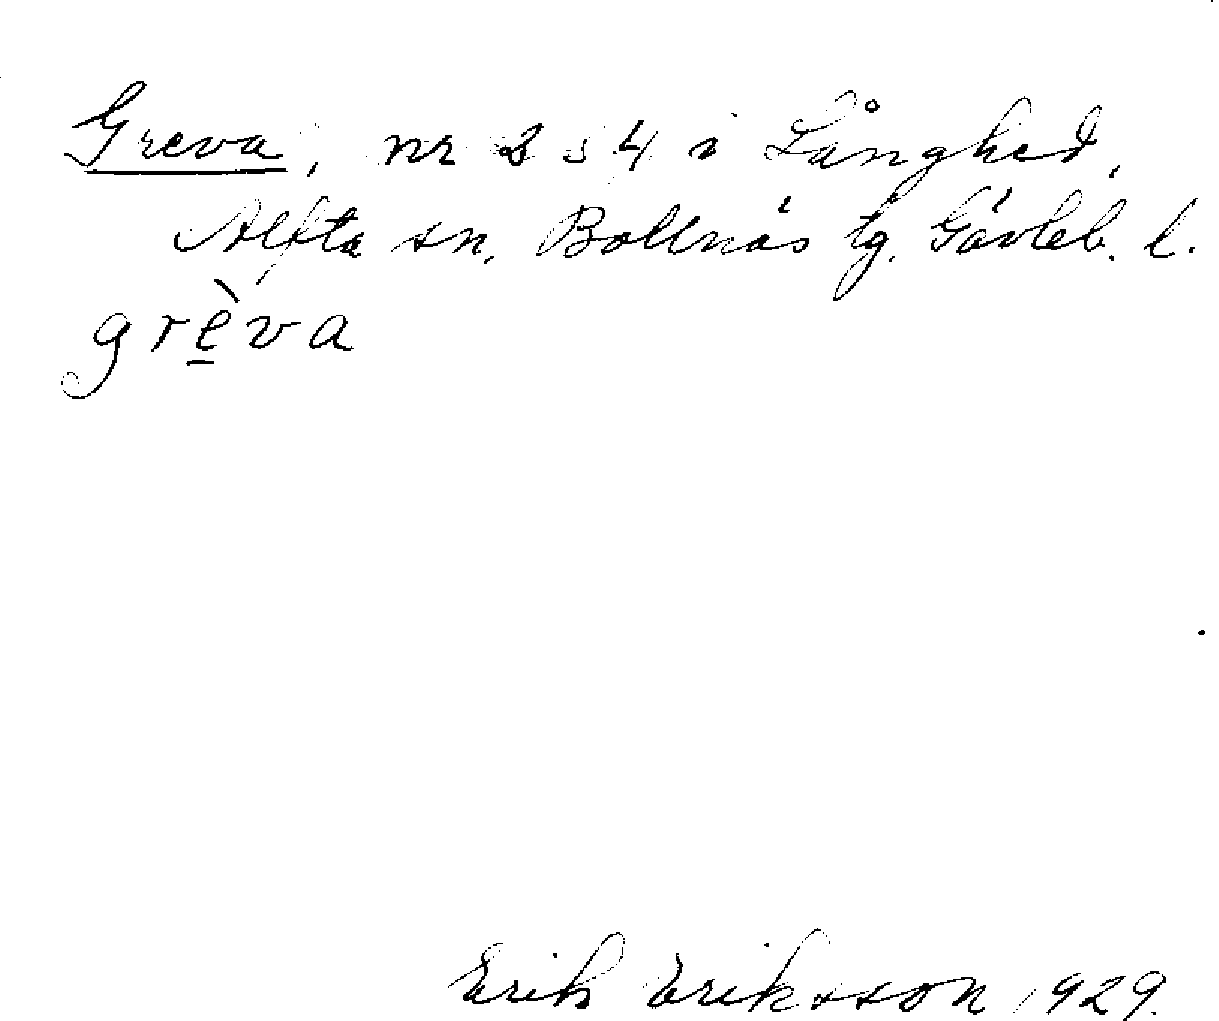 Greva, nr 2 s 4 i Långhed,
Alfta sn, Bollnäs tg. Gävleb. l.
grè̲va
Erik Eriksson 1929.